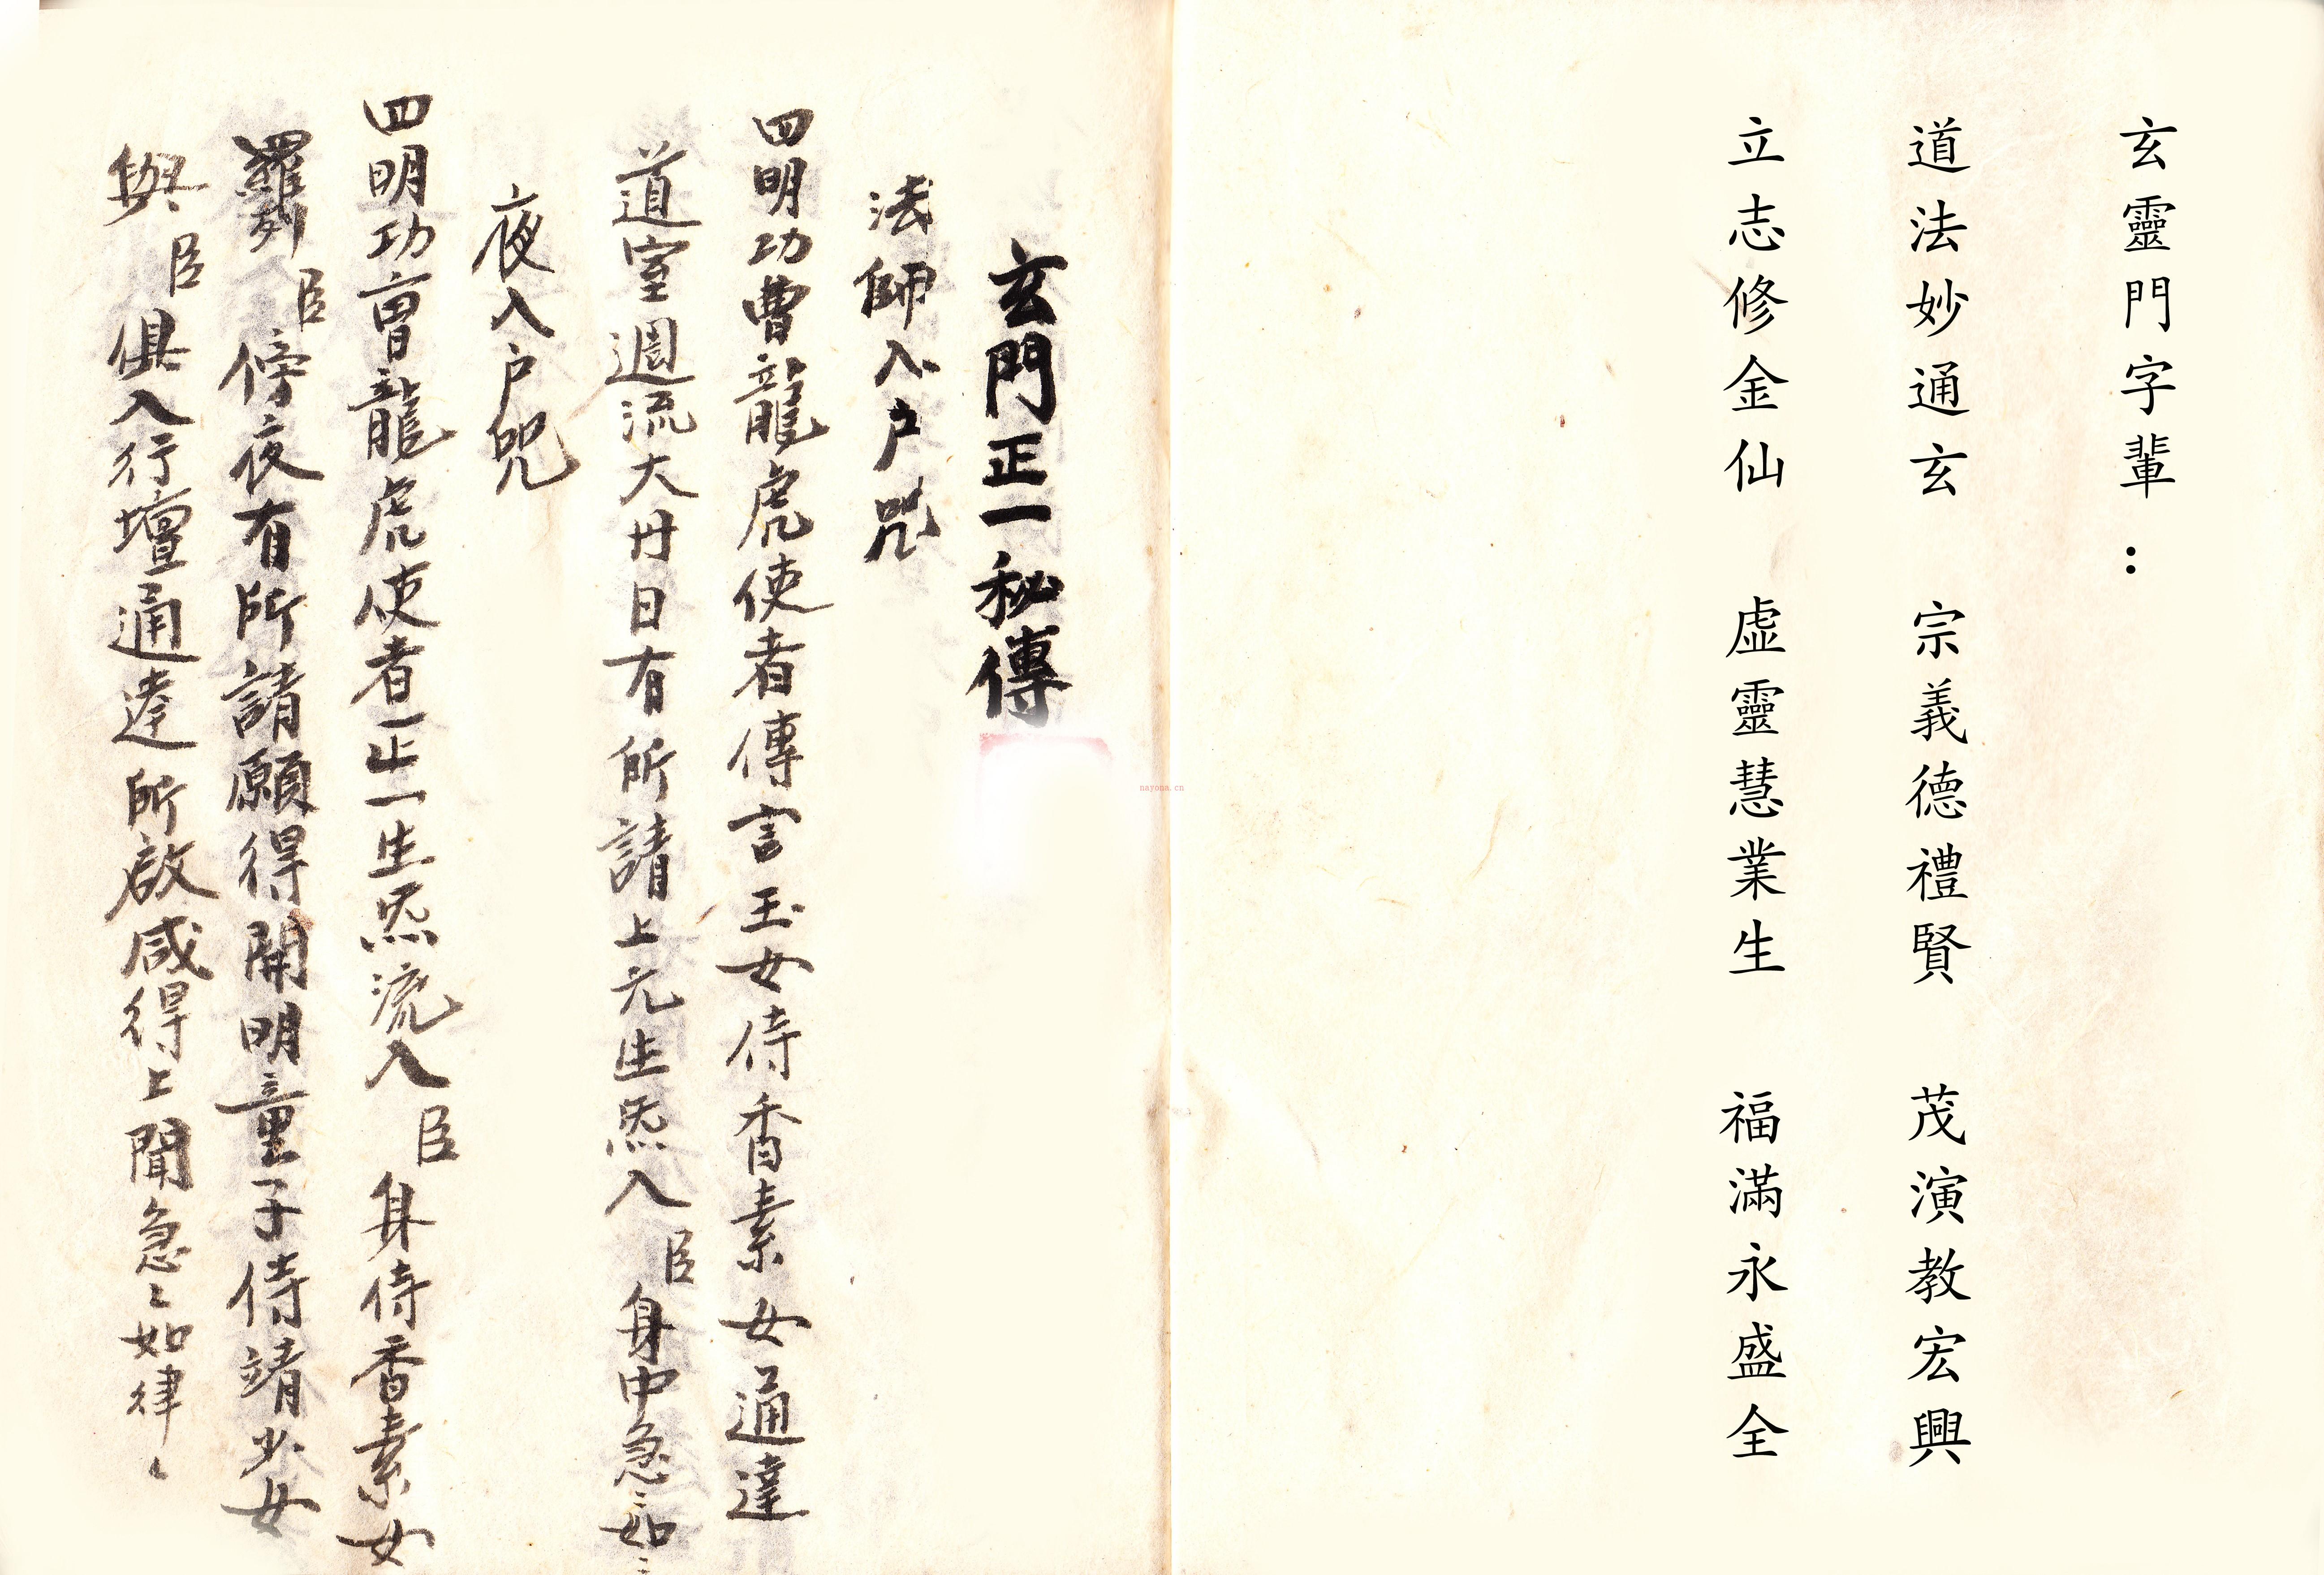 玄靈門字輩：
道法妙通玄 宗義德禮賢 茂演教宏興
立志修金仙 虛靈慧業生 福滿永盛全
玄門正一秘傳
法師入户咒
四明功曹龍虎使者傳言玉女侍香素女通達
道室週流大丹日有所請上元生炁入臣身中急〻如〻
夜入户咒
四明功曹龍虎使者正一生炁流入臣身侍香素女
羅列臣傍夜有所請願得開明童子侍靖少女
與臣俱入行壇通達所啟咸得上聞急〻如律〻
nayona.cn